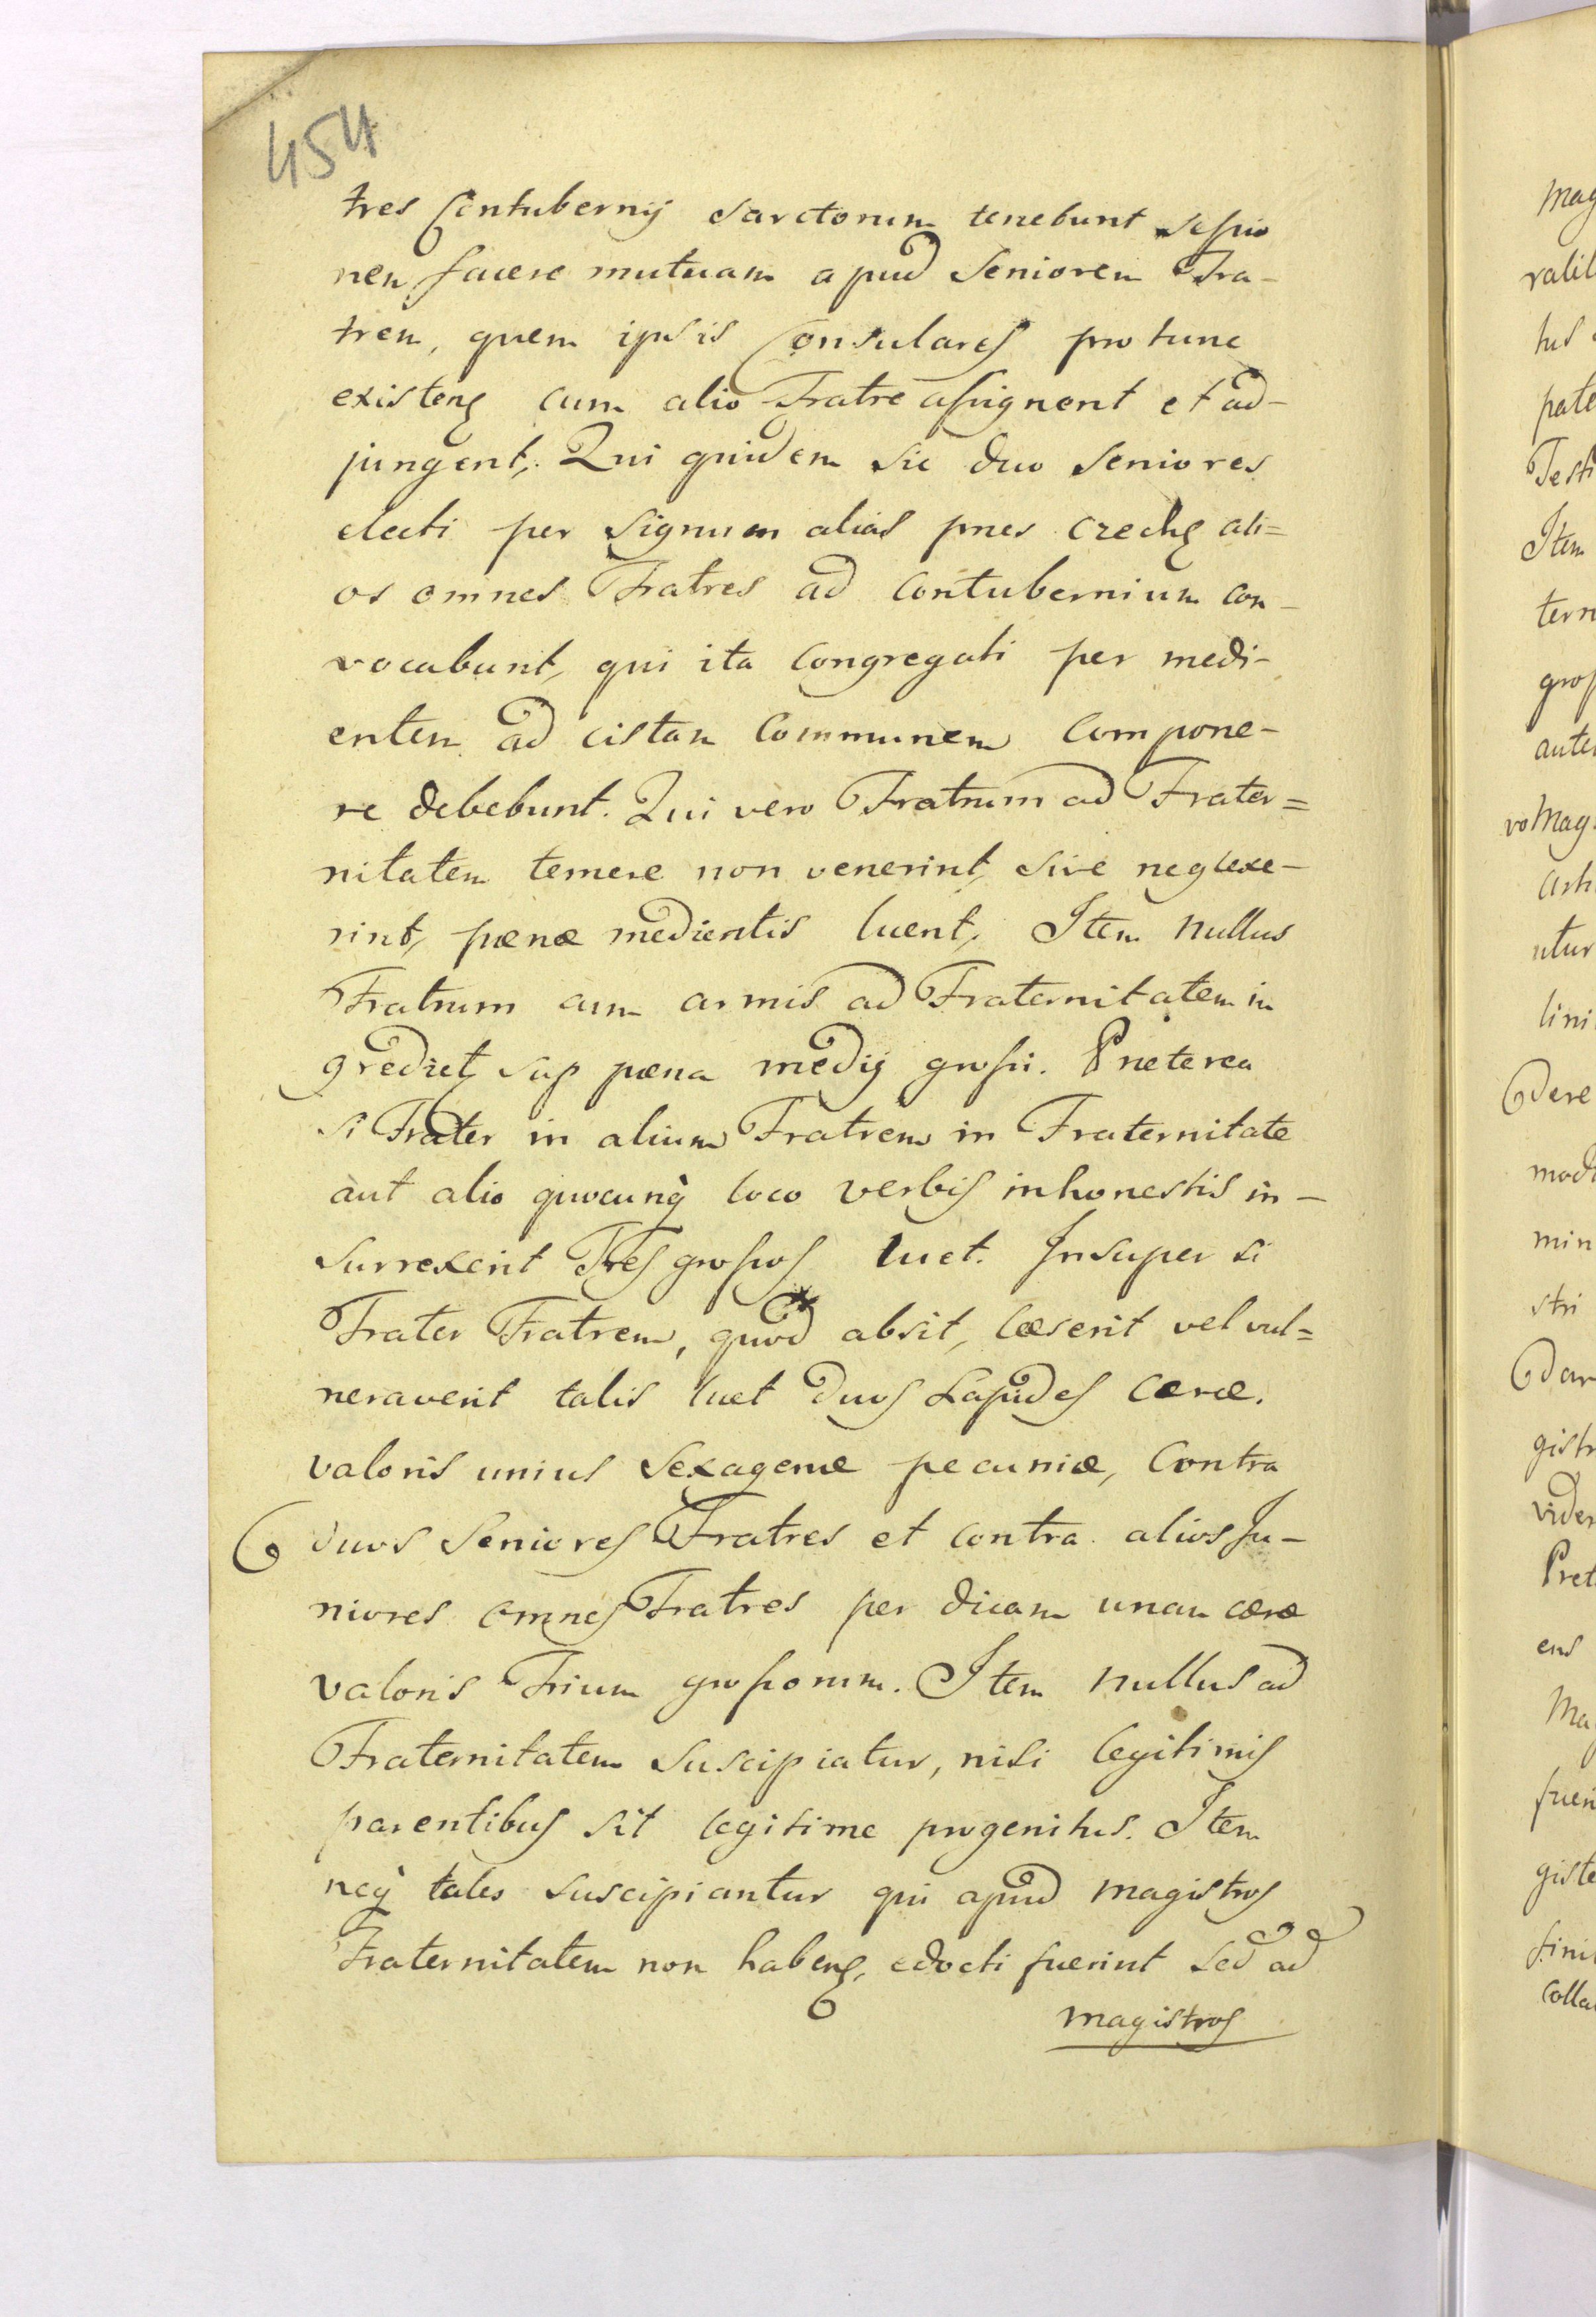 454
tres Contubernij sarctorum tenebunt sessio
nem facere mutuam apud Seniorem Fra-
trem, quem ipsis Consulares pro tunc
existens cum alio Fratre assignent et ad-
jungent, Qui quidem sic duo Seniores
electi per Signum alias pnes czechę ali=
os omnes Fratres ad Contubernium con-
vocabunt, qui ita Congregati per medi-
entem ad cistam Communem Compone-
re debebunt. Qui vero Fratrum ad Frater=
nitatem temere non venerint, sive neglexe-
rint, pœnæ medientis luent, Item nullus
Fratrum cum armis ad Fraternitatem in
grediet, sup pœna medij grossi. Preterea
si Frater in alium Fratrem in Fraternitate
aut alio quocunq̀ loco verbis inhonestis in-
surrexerit Tres grossos luet. Insuper si
Frater Fratrem, quod absit, læserit vel vul=
neraverit talis luet duos Lapides Ceræ.
valoris unius Sexagenæ pecuniæ, Contra
duos Seniores Fratres et contra alios Ju-
niores omnes Fratres per dicam unam ceræ
valoris Trium grossorum. Item nullus ad
Fraternitatem suscipiatur, nisi legitimis
parentibus sit legitime progenitus. Item
neq̀ tales suscipiantur qui apud magistros
Fraternitatem non habens, edocti fuerint sed ad
magistros